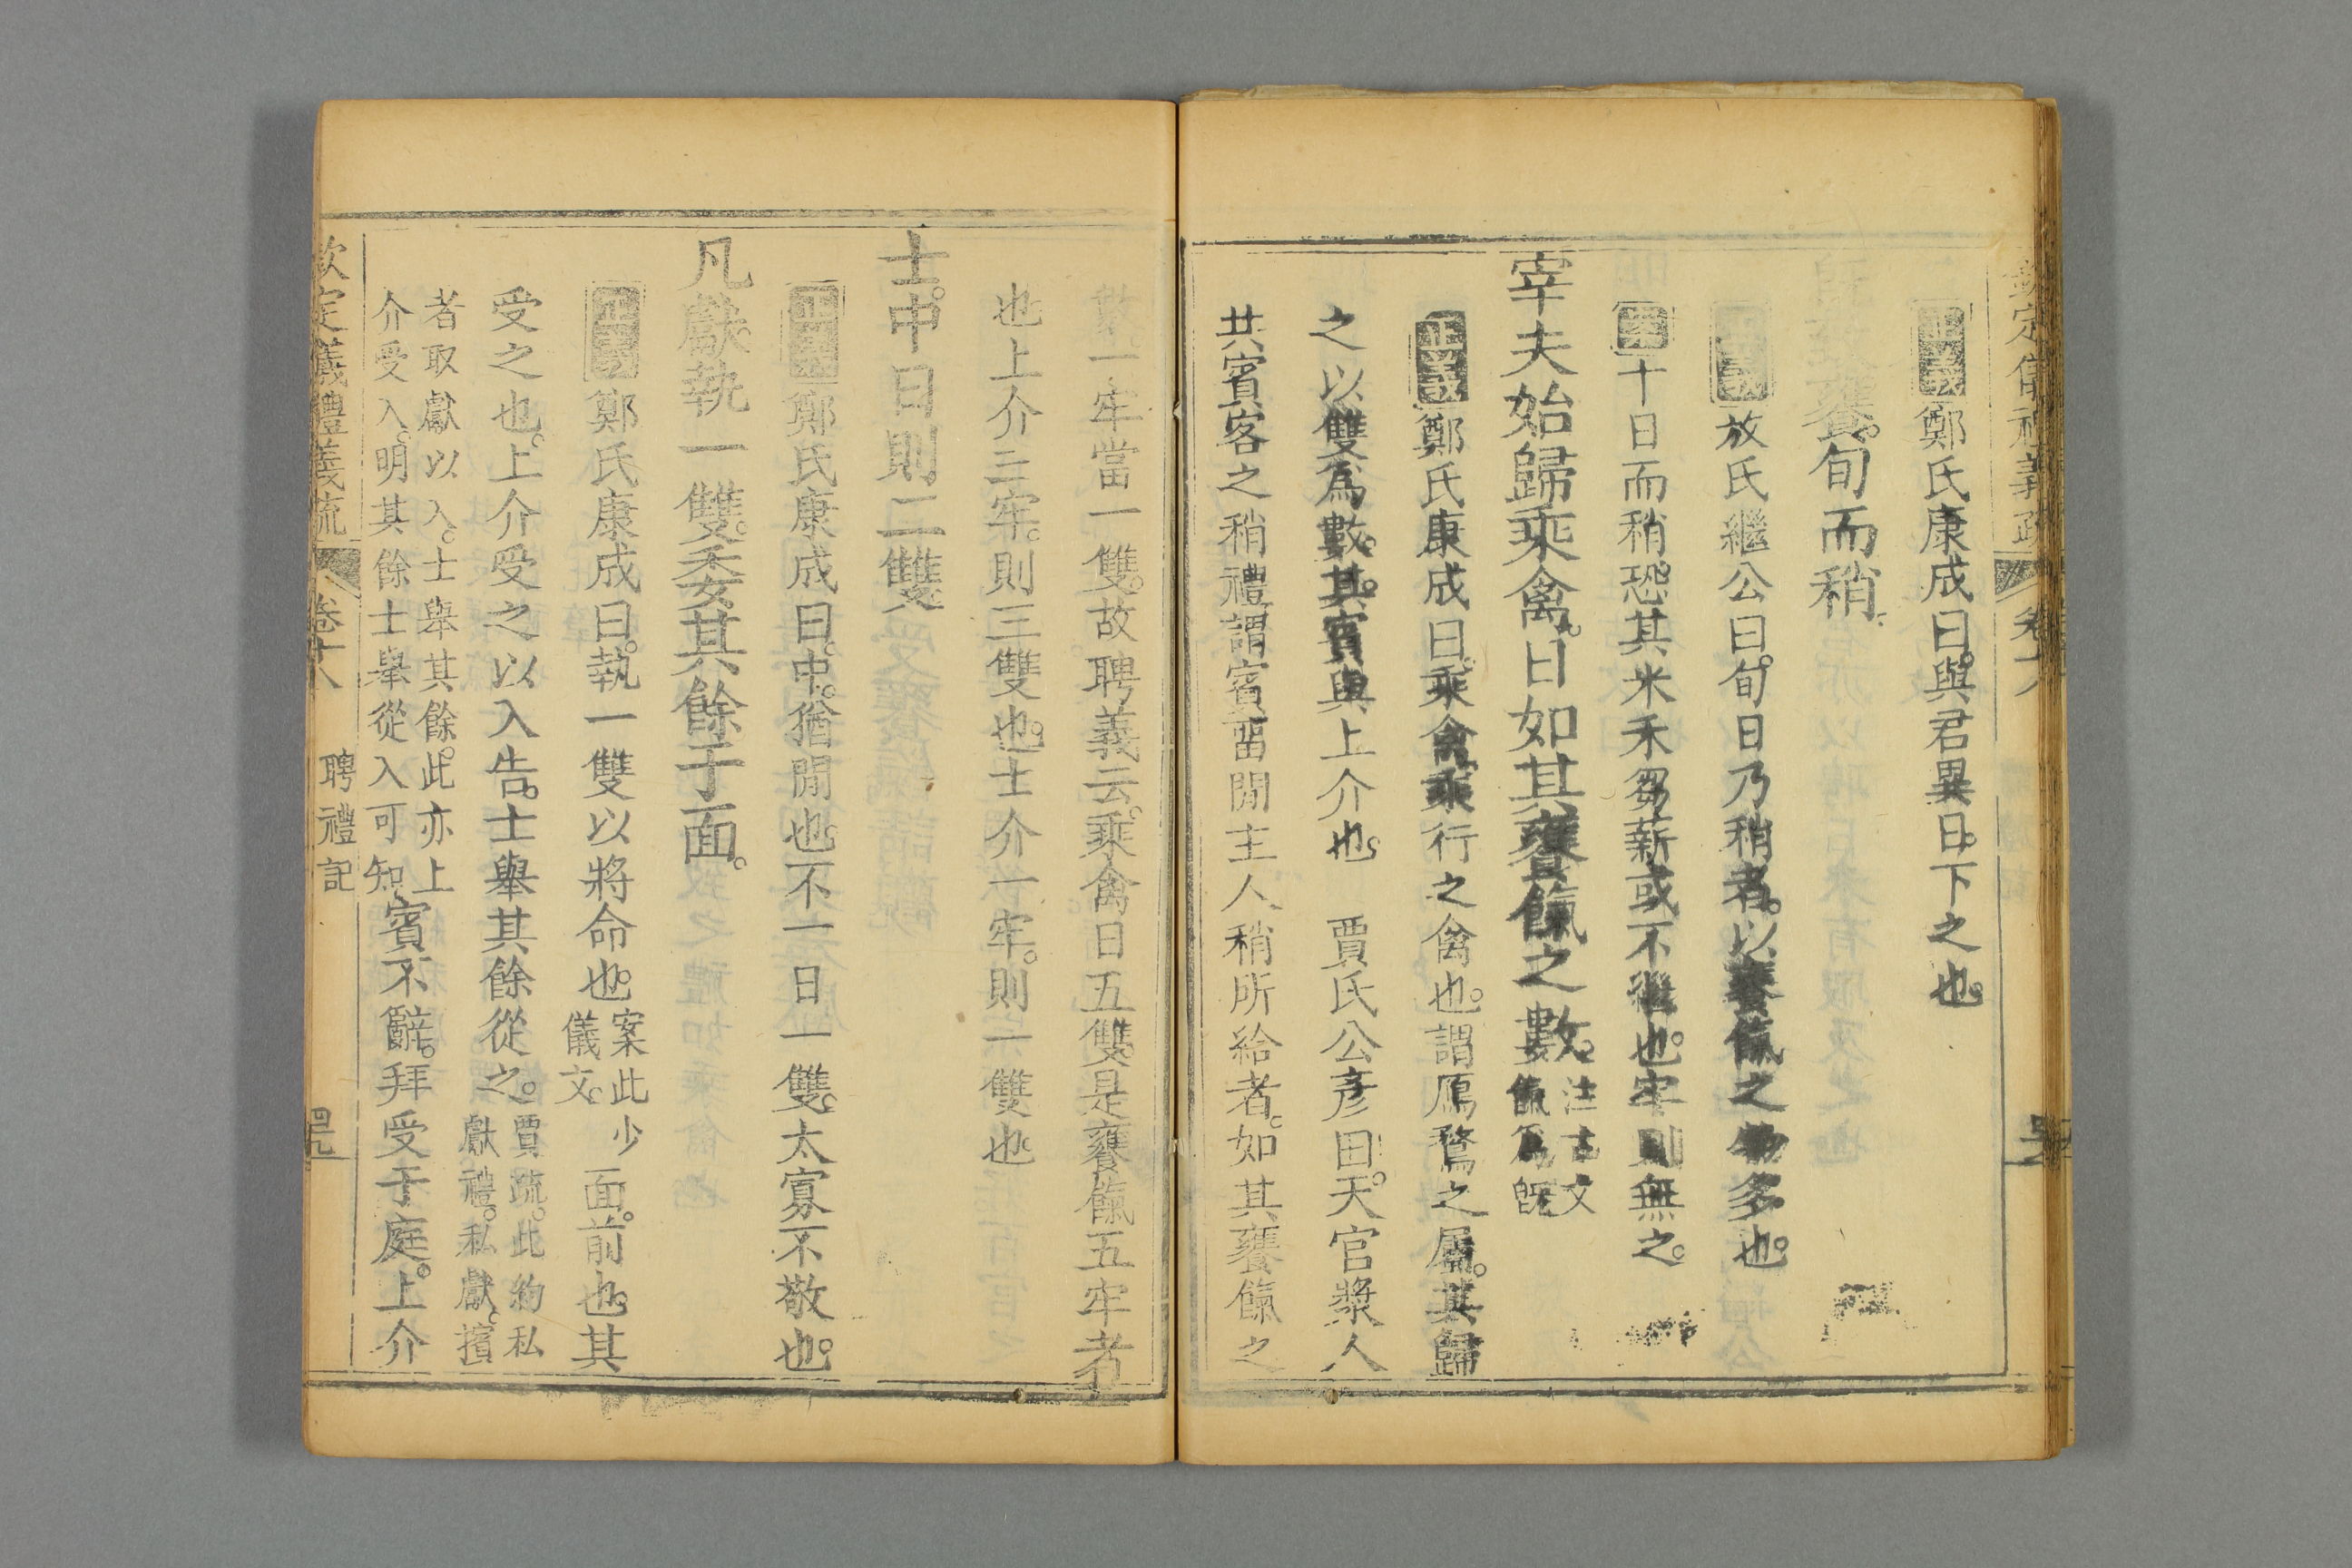 正義鄭氏康成曰與君異日下之也
旣致饔旬而稍
正義敖氏繼公曰旬日乃稍者以饔餼之物多也
案十日而稍恐其米禾芻薪或不繼也牢則無之
宰夫始歸乘禽日如其饔餼之數注古文餼爲旣
正義鄭氏康成曰乘禽乘行之禽也謂鴈鶩之屬其歸
之以雙爲數其賓與上介也 賈氏公彥曰天官漿人
共賓客之稍禮謂賓畱閒主人稍所給者如其饔餼之
數一牢當一雙故聘義云乘禽日五雙是饔餼五牢者
也上介三牢則三雙也士介一牢則一雙也
士中日則二雙
正義鄭氏康成曰中猶閒也不一日一雙太寡不敬也
凡獻執一雙委其餘于面
正義鄭氏康成曰執一雙以將命也案此少儀文面前也其
受之也上介受之以入告士舉其餘從之賈疏此約私獻禮私獻擯
者取獻以入士舉其餘此亦上介受入明其餘士舉從入可知賓不辭拜受于庭上介
欽定儀禮義疏 卷十八 聘禮記